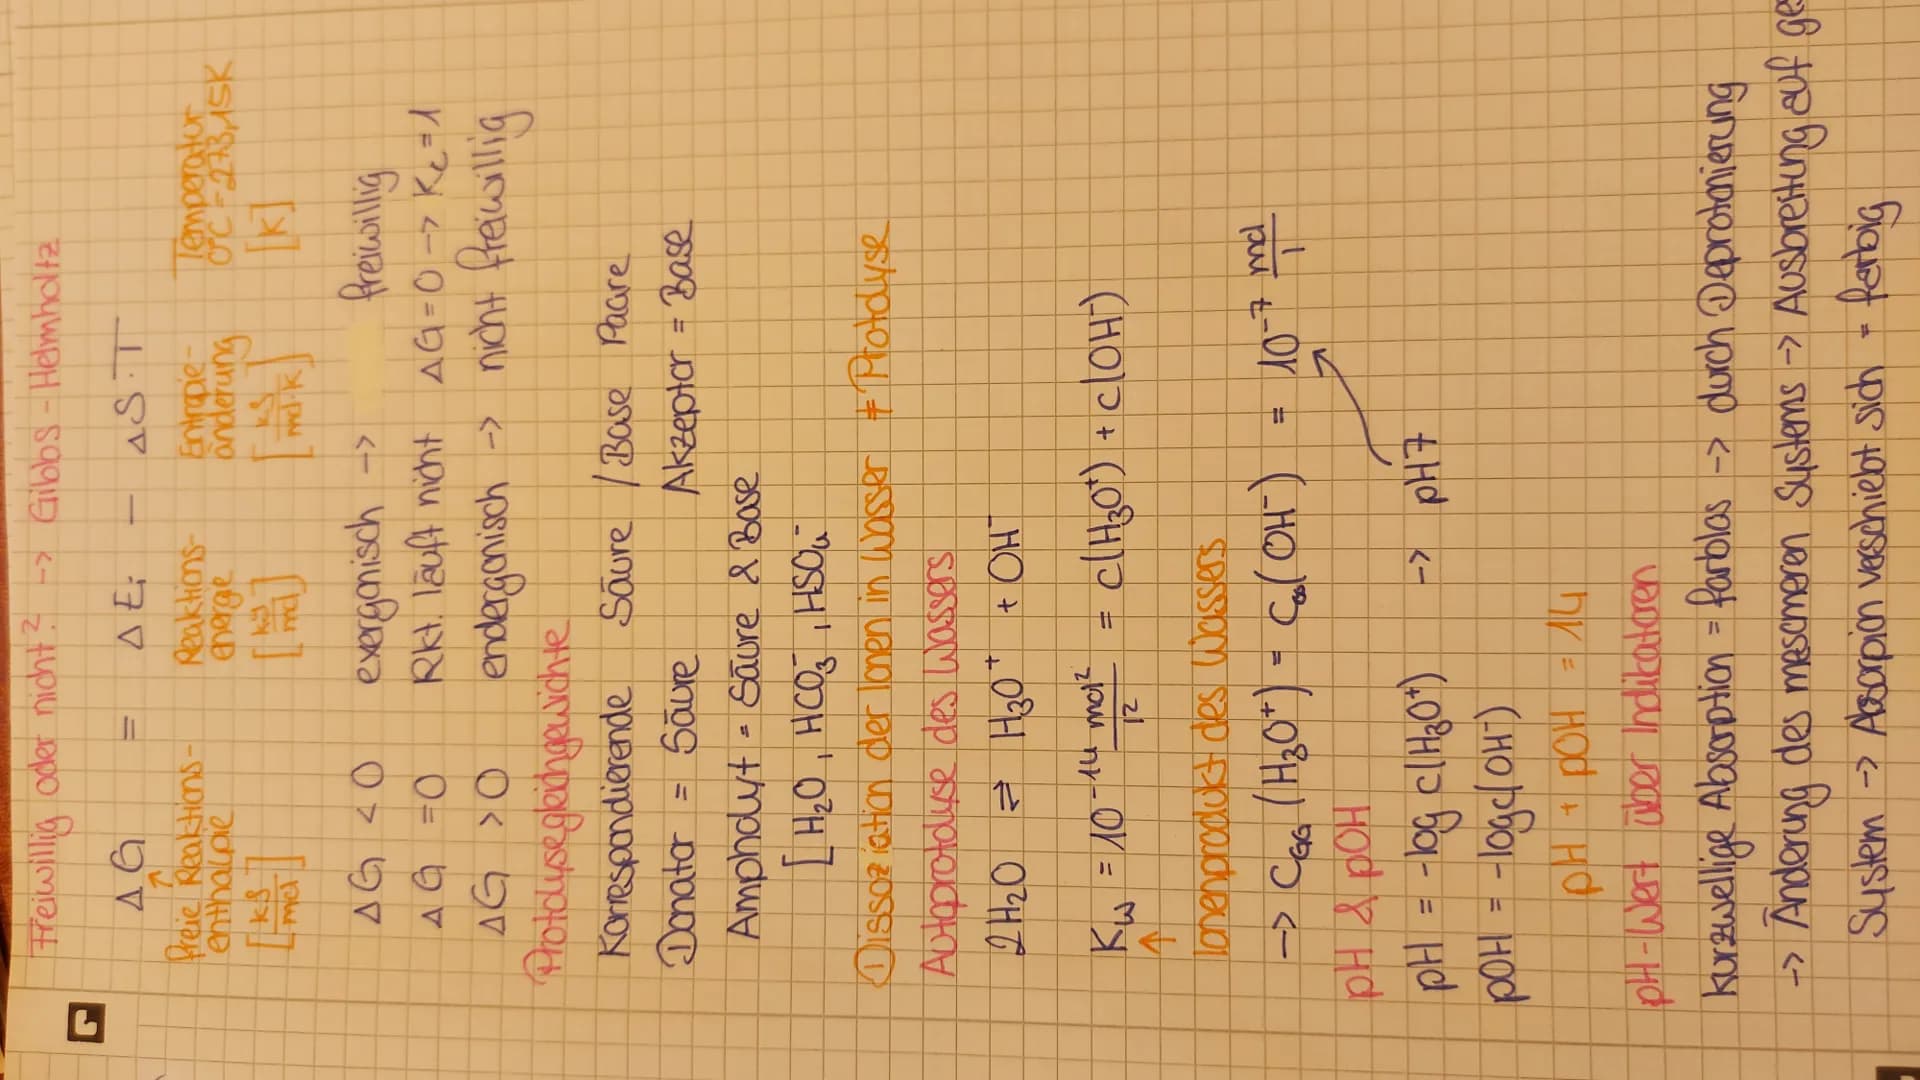 Freiwillig oder nicht? -> Gibbs-Helmholtz
ΔG = ΔEi - ΔS·T
↑
Freie Reaktions- Reaktions- Entropie- Temperatur
enthalpie energie änderung 0°C = 273,15K
[kJ/mol] [kJ/mol] [kJ/mol·K] [K]
ΔG < 0 exergonisch -> freiwillig
ΔG = 0 Rkt. läuft nicht ΔG = 0 -> Kc = 1
ΔG > 0 endergonisch -> nicht freiwillig
Protolysegleichgewichte
Korrespondierende Säure / Base Paare
Donator = Säure Akzeptor = Base
Ampholyt = Säure & Base
[H₂O, HCO₃⁻, HSO₄⁻
Dissoziation der Ionen in Wasser ≠ Protolyse
Autoprotolyse des Wassers
2H₂O ⇌ H₃O⁺ + OH⁻
Kw = 10⁻¹⁴ mol²/l² = c(H₃O⁺) + c(OH⁻)
↑
Ionenprodukt des Wassers
-> CGG (H₃O⁺) = CGG (OH⁻) = 10⁻⁷ mol/l
pH & pOH
pH = -log c(H₃O⁺) -> pH7
pOH = -log c(OH⁻)
pH + pOH = 14
pH-Wert über Indikatoren
kurzwellige Absorption = farblos -> durch Deprotonierung
-> Änderung des mesomeren Systems -> Ausbreitung auf
System -> Absorpion verschiebt sich = farbig